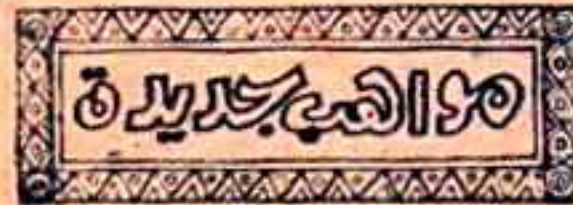 مواهب جديدة